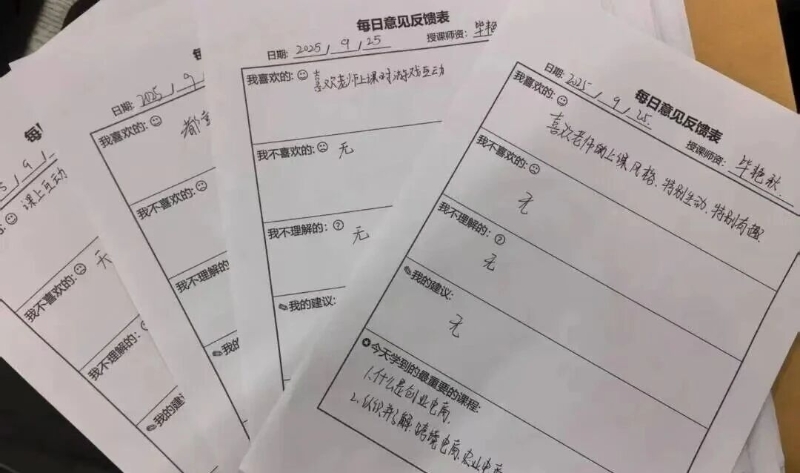 每日意见反馈表
日期: 2025 / 9 / 25
授课师资: 毕艳秋
我喜欢的:
喜欢老师的上课风格、特别生动、特别有趣
我不喜欢的:
无
我不理解的:
无
我的建议:
无
今天学到的最重要的课程:
1.什么是创业电商.
2.认识和了解.跨境电商.
每日意见反馈表
日期: 2025 / 9 / 25
授课师资: 毕艳
我喜欢的:
喜欢老师上课时游戏互动
我不喜欢的:
无
我不理解的:
无
我的建议:
日期: 2025 / 9
我喜欢的:
都
我不喜欢的:
我不理解的:
我的
每
5 / 9 /
课上互动
我不喜欢的:
无
我不理解的:
我的建